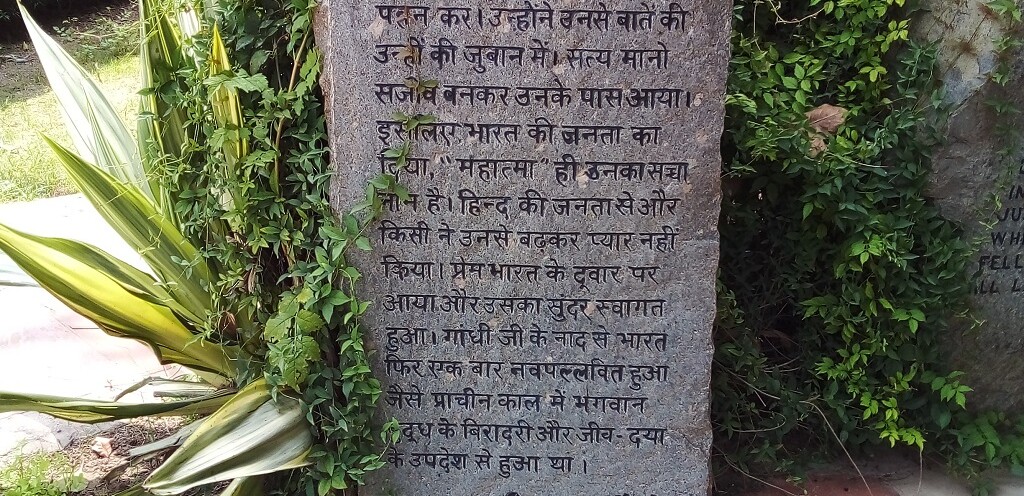 पहन कर। उन्होंने उनसे बातें की
उन्हीं की जुबान में। सत्य मानो
सजीव बनकर उनके पास आया।
इसीलिए भारत की जनता का
दिया, "महात्मा" ही उनका सच्चा
नाम है। हिन्द की जनता से और
किसी ने उनसे बढ़कर प्यार नहीं
किया। प्रेम भारत के द्वार पर
आया और उसका सुंदर स्वागत
हुआ। गांधी जी के नाद से भारत
फिर एक बार नवपल्लवित हुआ
जैसे प्राचीन काल में भगवान
बुद्ध के बिरादरी और जीव-दया
के उपदेश से हुआ था।
IN
JU
WH
FELL
ALL L